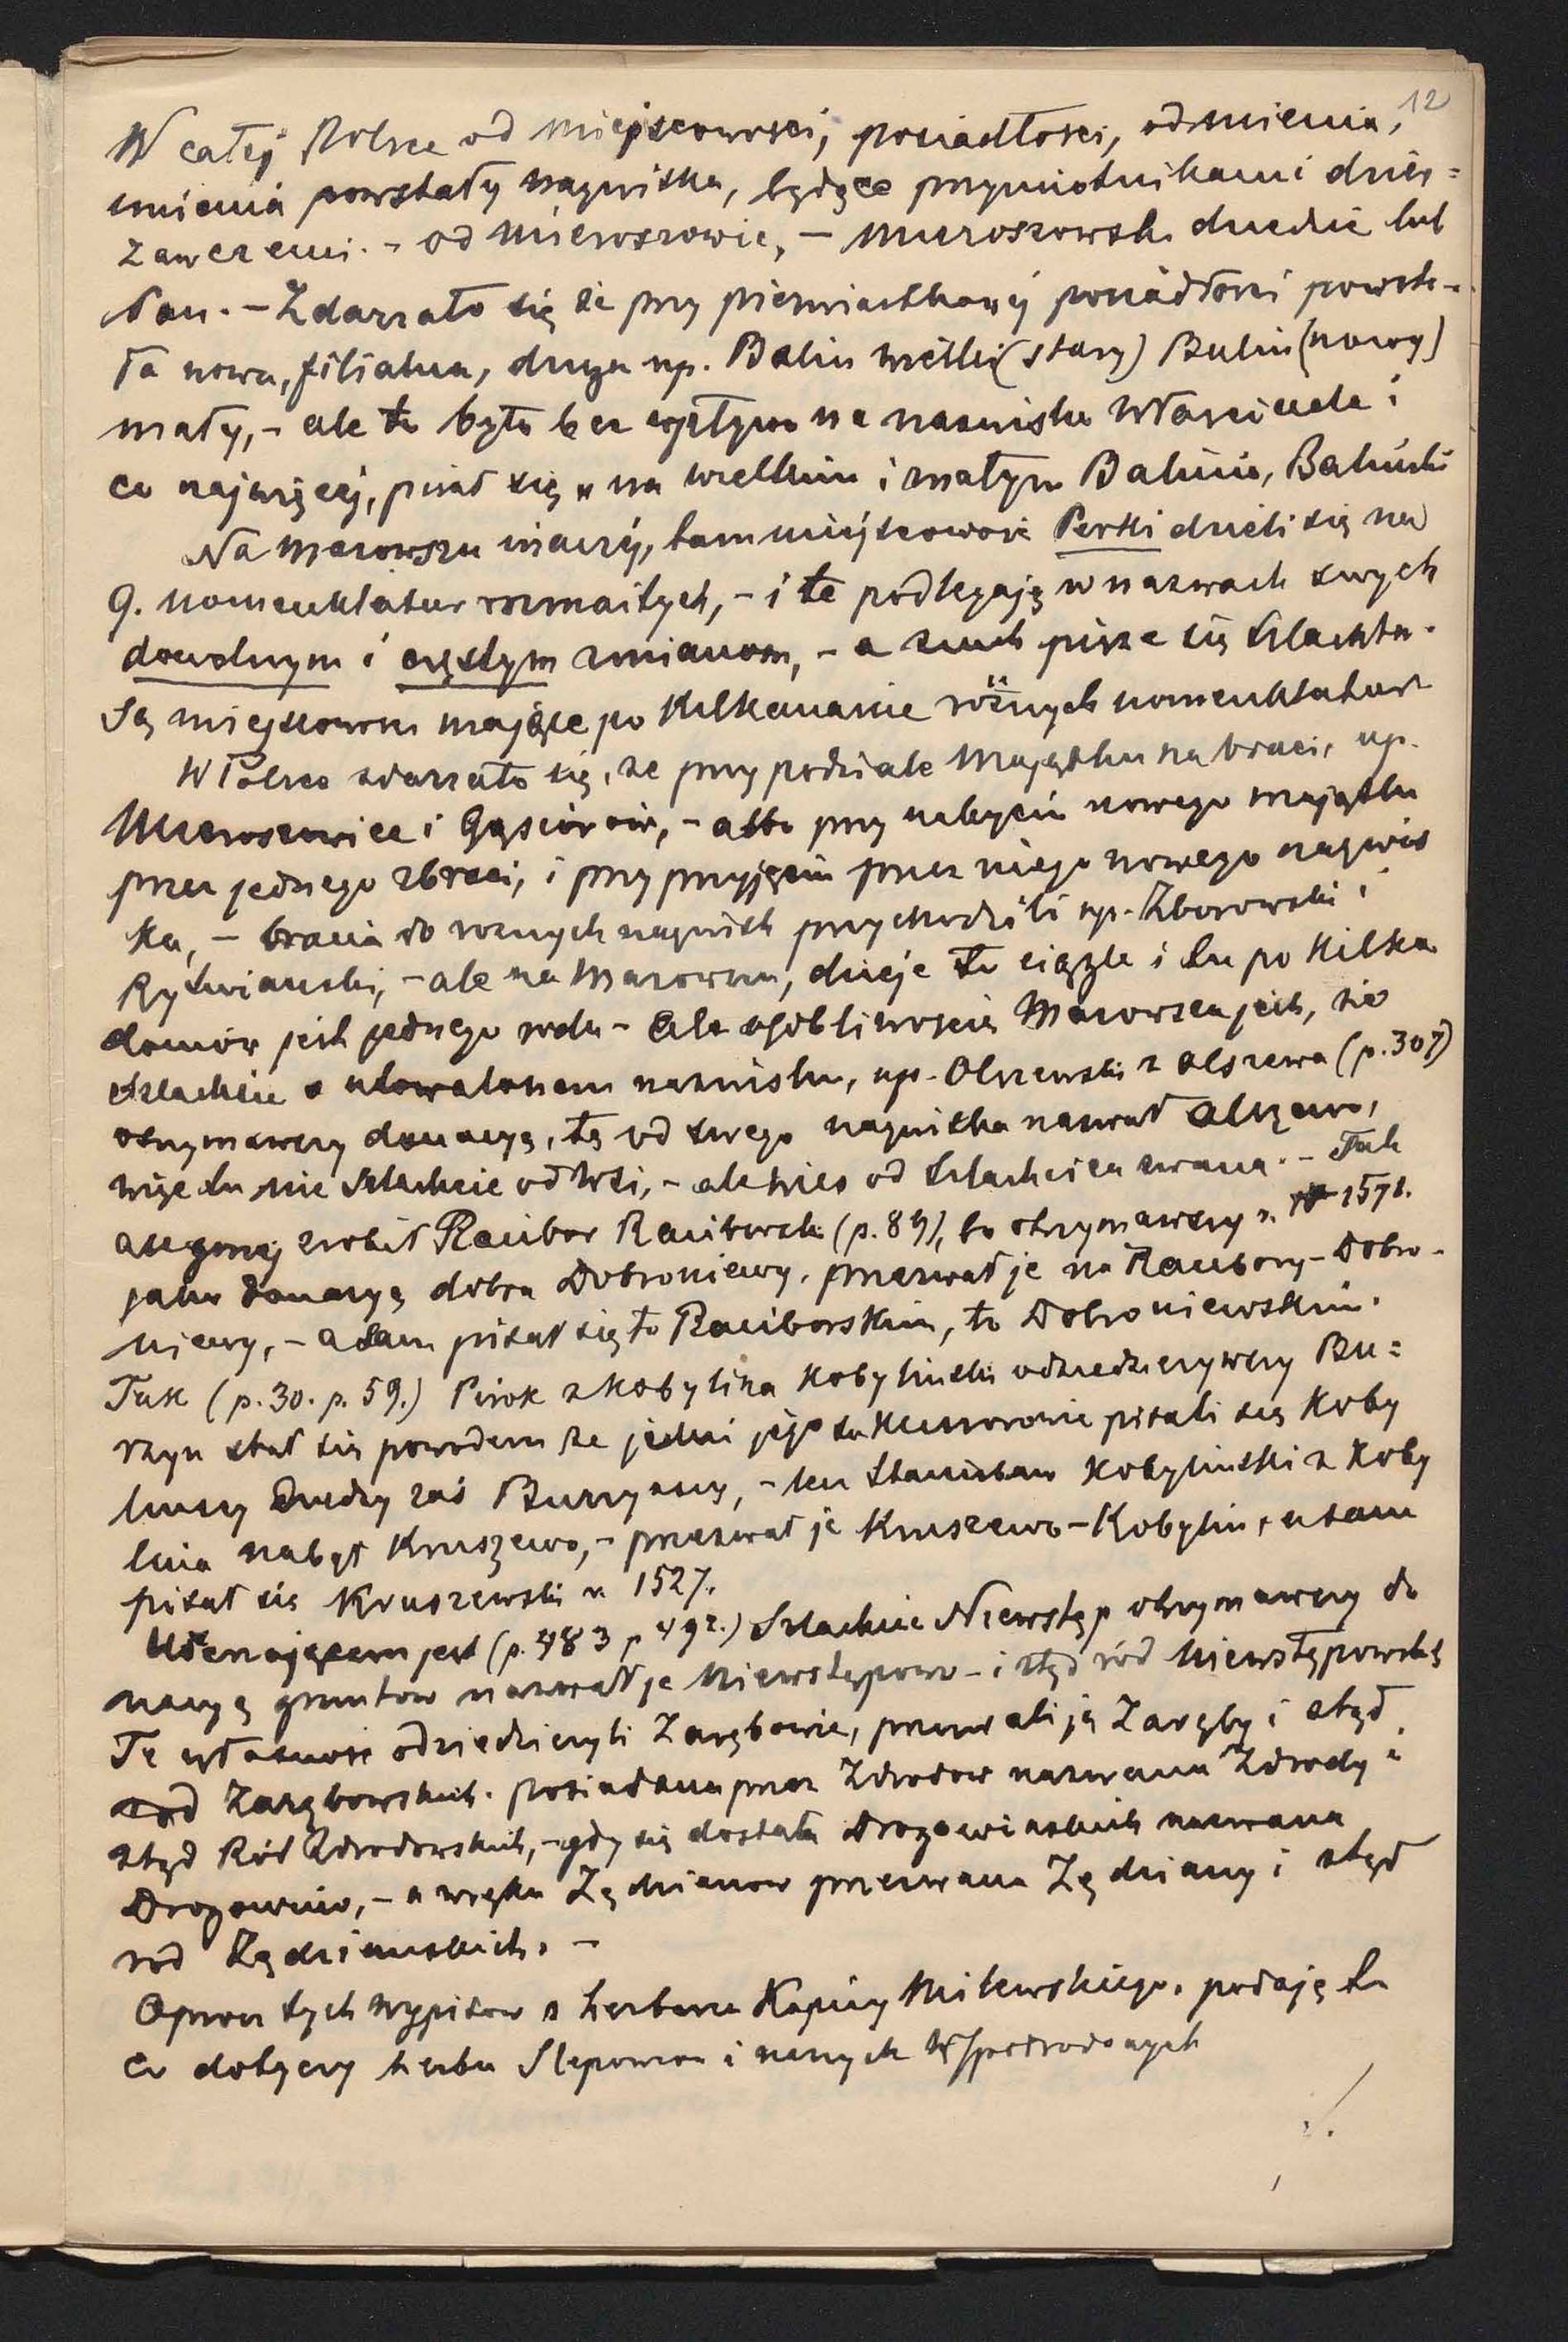 12
W całej Polsce od miejscowości, posiadłości, od mienia,
imienia powstały nazwiska, będące przymiotnikami dzier=
zawczemi. - od Mieroszowic, - Mieroszowski dziedzic lub
Pan. - Zdarzało się że przy pierwiastkowej posiadłości powsta-
ła nowa, filialna, druga np. Balin wielki (stary) Balin (nowy)
mały, - ale to było bez wpływu na nazwisko Właściciela i
co najwięcej, pisał się „na wielkim i małym Balinie, Baliński
Na Mazowszu inaczej, tam miejscowość Perki dzieli się na
9. nomenklatur rozmaitych, - i te podlegają w nazwach swych
dowolnym i częstym zmianom, - a z nich pisze się Szlachta.
Są miejscowości mające po Kilkanaście różnych nomenklatur
W Polsce zdarzało się, że przy podziale Majątku na braci, np.
Mieroszowice i Gąsiorów, - albo przy nabyciu nowego majątku
przez jednego z braci, i przy przyjęciu przez niego nowego nazwis
ka, - bracia do różnych nazwisk przychodzili np. Zborowski i
Rytwiański, - ale na Mazowszu, dzieje to ciągle i tu po Kilka
domów jest jednego rodu - Ale osobliwością Mazowsza jest, że
Szlachcic o nazwisku, np. Olszewski z Olszewa (p. 307)
otrzymawszy donacyą, tę od swego nazwiska nazwał Olszewo,
więc tu nie Szlachcic od Wsi, - ale wieś od Szlachcica zwana. - Tak
zrobił Racibor Raciborski (p. 89), bo otrzymawszy r. 1571.
jako donacyą dobra Dobroniewy, przezwał je na Racibory - Dobro-
niewy, - a sam pisał się to Raciborskim, to Dobroniewskim.
Tak (p. 30. p. 59.) Pirok z Kobylina Kobyliński odziedziczywszy Bu=
rzyn stał się powodem że jedni jego sukcesorowie pisali się Koby
lińscy Drudzy zaś Burzyńscy, - ten Stanisław Kobyliński z Koby
lina nabył Kruszewo, - przezwał je Kruszewo - Kobylin, a sam
pisał się Kruszewski r. 1527.
jest (p. 483 p 492.) Szlachcic Niewstęp otrzymawszy do
nacyą gruntów nazwał je Niewstępowo - i stąd ród Niewstępowskich
Tę własność odziedziczyli Zarębowie, przezwali ją Zaręby i stąd
ród Zarębowskich. posiadana przez Zdrodów nazwana Zdrody i
stąd Ród Zdrodowskich, - gdy się dostała Drogowińskich nazwana
Drogowino, - a w ręku Zędzianów przezwana Zędziany i stąd
ród Zędziańskich. -
Oprócz tych wypisów z herbarza Kapicy Milewskiego. podaję tu
co dotyczy herbu Slepowron i naszych Współrodowych